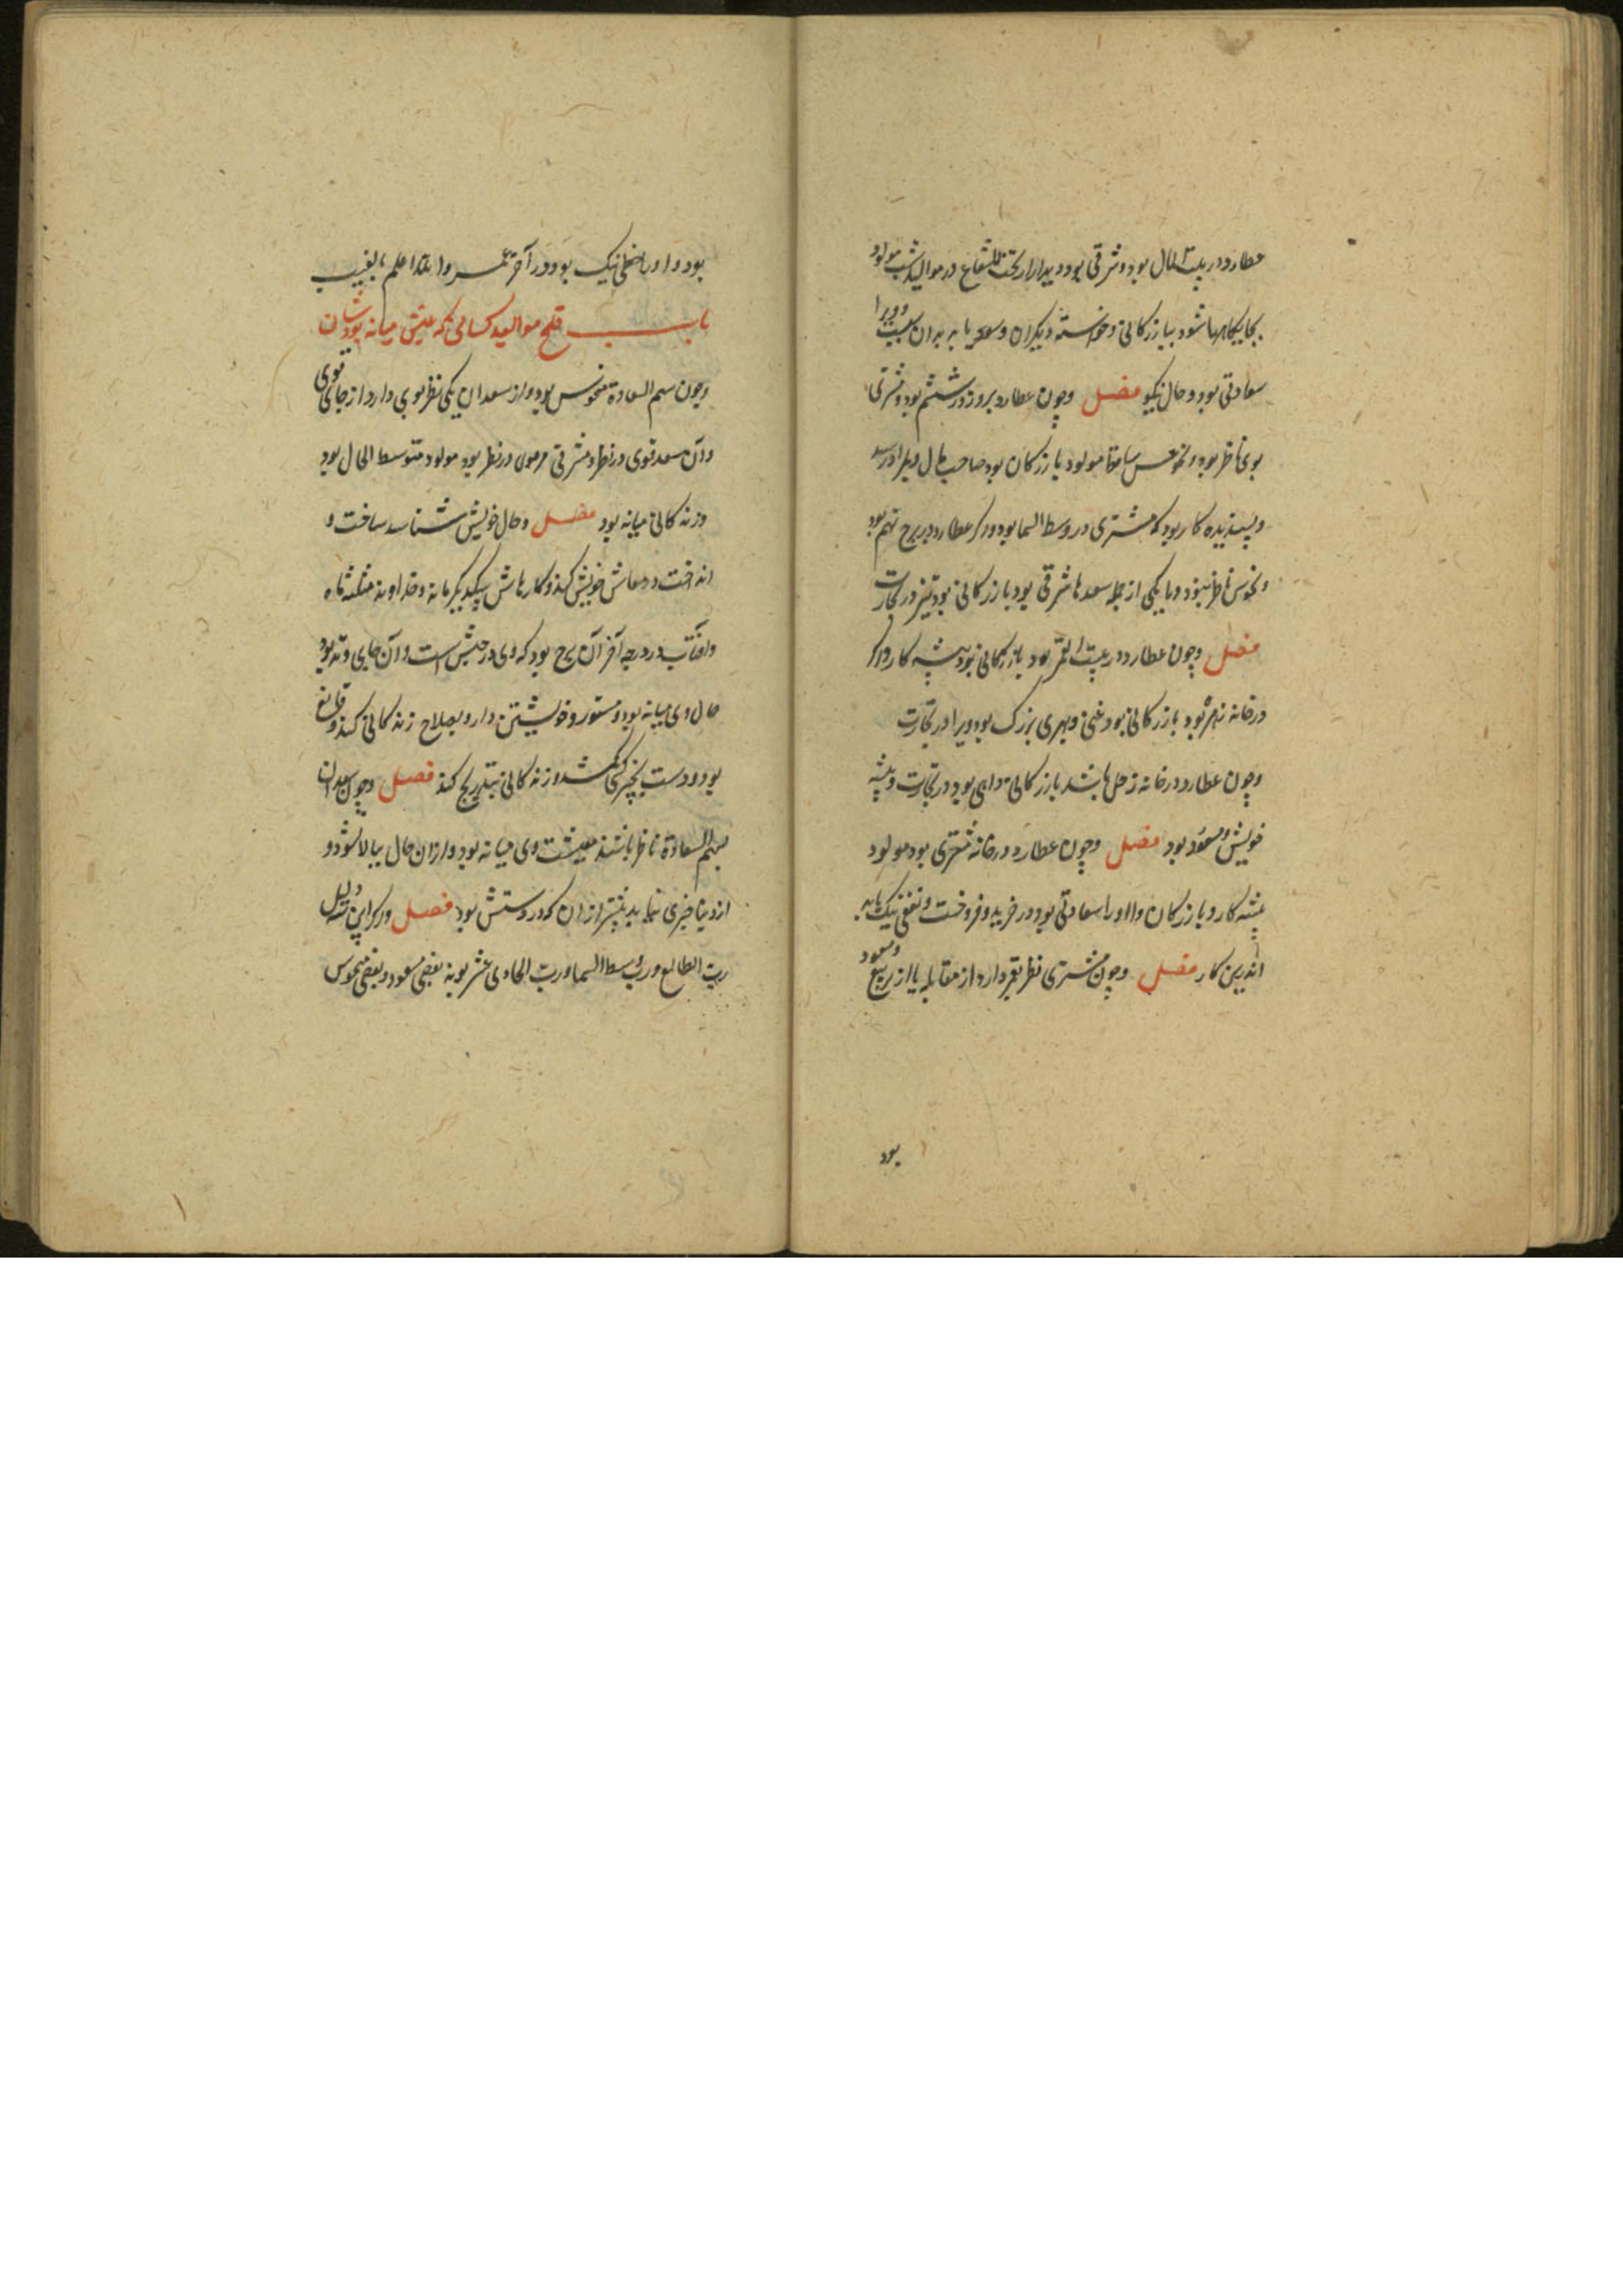 عطارد در بیت المال بود و شرقی بود و پدیدار از تحت الشعاع در موالید شب مولود
بجایگاهها شود ببازرگانی و خواسته دیگران و سود یابد بدان سبب و ویرا
سعادتی بود و حال نیکو فصل وچون عطارد بروز در ششم بود و مشرقی
بوی ناظر بود و نحوس ساقط مولود بازرگان بود صاحب مال
و پسندیده کار بود که مشتری در وسط السما بود و اگر عطارد در برج نهم بود
و نحوس ناظر نبود و با یکی از جمله سعدها شرقی بود بازرگانی بود تیز در تجارت
فصل وچون عطارد در بیت القمر بود بازرگانی بود پیشه کار و اگر
در خانه زهره بود بازرگانی بود غنی و بهری بزرگ بود ویرا در تجارت
وچون عطارد در خانه زحل باشد بازرگانی داهی بود در تجارت و پیشه
خویش و مسعود بود فصل وچون عطارد در خانه مشتری بود مولود
پیشه کار و بازرگان و او را سعادتی بود در خرید و فروخت و نفعی نیک یابد
اندرین کار فصل وچون مشتری نظر بقمر دارد از مقابله یا از تربیع و مسعود
بود
بود و او را حظی نیک بود در آخر عمر والله اعلم بالغیب
باب موالید کسانی که عیش میانه بودشان
وچون سهم السعادة منحوس بود و از سعدان یکی نظر بوی دارد از جای قوی
و آن سعد قوی در نظر و مشرقی در نظر بود مولود متوسط الحال بود
و زندگانی میانه بود فصل وحال خویش شناسد ساخت و
انداخت و معاش خویش کند و کارهاش و خداوند مثلثه ماه
و آفتاب در درجه آخر آن برج بود که وی در حیثش است و آن جایی وتد بود
حال وی میانه بود و مستور و خویشتن دار و بصلاح زندگانی کند و قانع
بود و دست بچیزی کشد و زندگانی بتدریج کند فصل وچون سعدان
بسهم السعادة ناظر باشند معیشت وی میانه بود و از آن حال ببالا شود و
از دنیا چیزی نماید بیشتر از آن که در دستش بود فصل و اگر این سه دلیل
رب الطالع و رب وسط السما و رب الحادی عشر بوند بعضی مسعود و بعضی منحوس